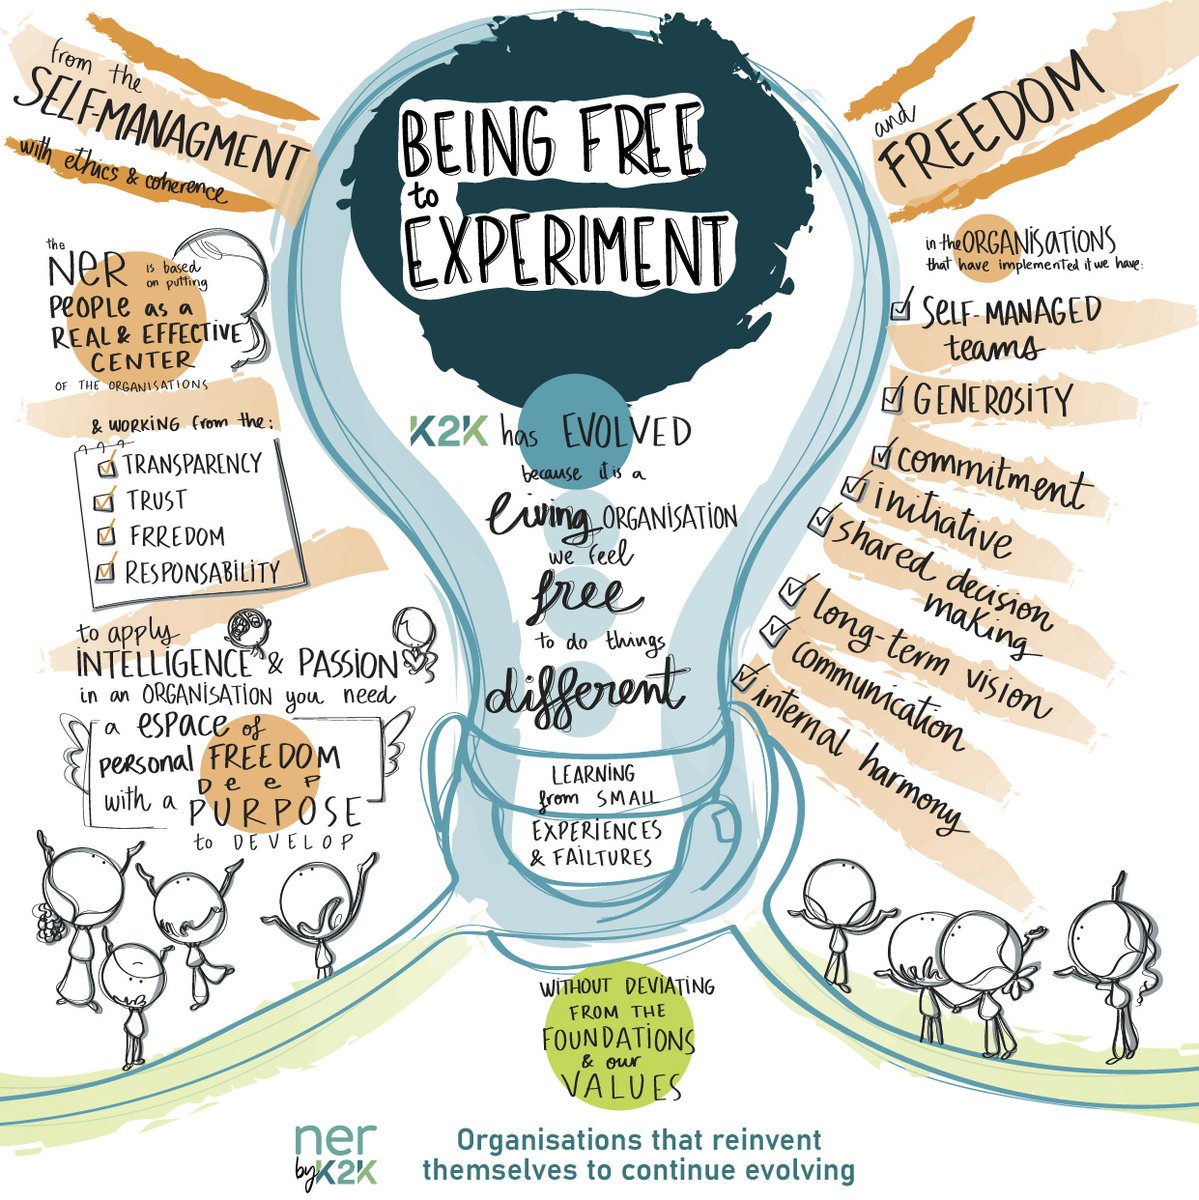 from the
SELF-MANAGMENT
with ethics & coherence
the
NER is based
on putting
PEOPLE as a
REAL & EFFECTIVE
CENTER
OF THE ORGANISATIONS
& WORKING from the:
TRANSPARENCY
TRUST
FRREDOM
RESPONSABILITY
to apply
INTELLIGENCE & PASSION
in an ORGANISATION you need
a ESPACE of
personal FREEDOM
DEEP
with a PURPOSE
to DEVELOP
BEING FREE
to
EXPERIMENT
K2K has EVOLVED
because it is a
living ORGANISATION
we feel
free
to do things
different
LEARNING
from SMALL
EXPERIENCES
& FAILTURES
WITHOUT DEVIATING
FROM THE
FOUNDATIONS
& our
VALUES
and
FREEDOM
in the ORGANISATIONS
that have implemented it we have:
SELF-MANAGED
teams
GENEROSITY
commitment
initiative
shared decision
making
long-term vision
communication
internal harmony
ner
by K2K
Organisations that reinvent
themselves to continue evolving